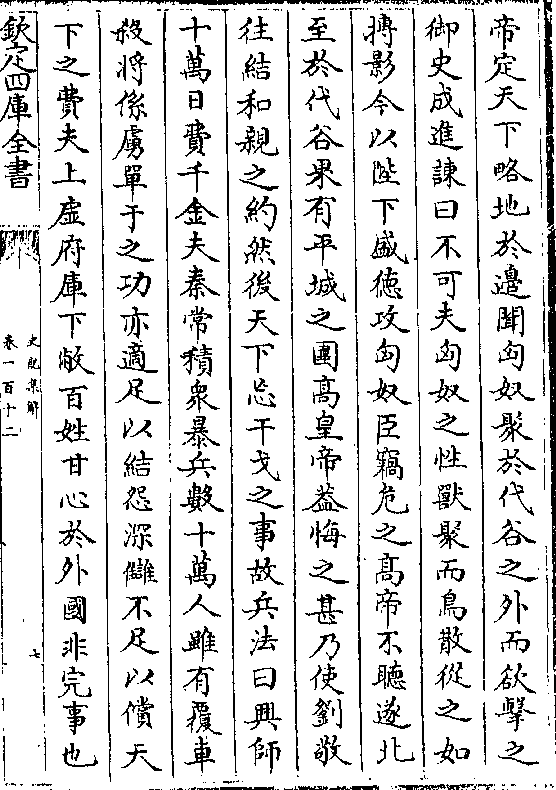 帝定天下略地於邊聞匈奴聚於代谷之外而欲擊之
御史成進諫曰不可夫匈奴之性獸聚而鳥散從之如
搏影今以陛下盛德攻匈奴臣竊危之髙帝不聽遂北
至於代谷果有平城之圍髙皇帝葢悔之甚乃使劉敬
往結和親之約然後天下忘干戈之事故兵法曰興師
十萬日費千金夫秦常積衆暴兵數十萬人雖有覆車
殺將係虜單于之功亦適足以結怨深讎不足以償天
下之費夫上虛府庫下敝百姓甘心於外國非完事也
欽定四庫全書
史記集解
卷一百十二
七